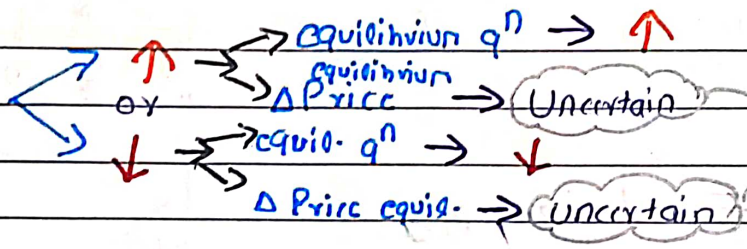 ↑ → equilibrium qⁿ → ↑
or equilibrium
Δ Price → Uncertain
↓ → equil. qⁿ → ↓
Δ Price equil. → uncertain